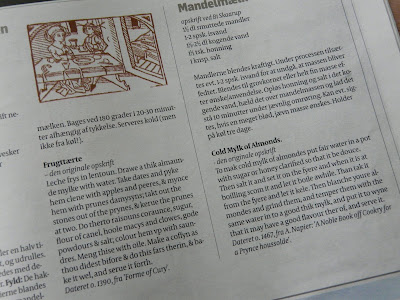 mælken. Bages ved 180 grader i 20-30 minut-
ter afhængig af tykkelse. Serveres kold (men
ikke fra køl!).
Frugttærte
– den originale opskrift
Leche frys in lentoun. Drawe a thik almaun-
de mylke with water. Take dates and pyke
hem clene with apples and peeres, & mynce
hem with prunes damysyns; take out the
stones out of the prunes, & kerue the prunes
at two. Do therto raisouns coraunce, sugur,
flour of canel, hoole macys and clowes, gode
powdours & salt; colour hem vp with saun-
dres. Meng thise with oile. Make a coffyn as
thou didest bifore & do this fars therin, & ba-
ke it wel, and serue it forth.
Dateret o. 1390, fra 'Forme of Cury'.
opskrift ved fh Skaarup
1½ dl smuttede mandler
1-2 spsk. isvand
1½-2½ dl kogende vand
1 knsp. salt
Mandlerne blendes kraftigt. Under processen tilsæt-
tes evt. 1-2 spsk. isvand for at undgå, at massen bliver
fedtet. Blendes til grovkornet eller helt fin masse ef-
ter ønske/anvendelse. Opløs honning og salt i det ko-
gende vand, hæld det over mandelmassen og lad det
stå 10 minutter under jævnlig omrøring. Kan evt. sig-
tes, hvis en meget blød, jævn masse ønskes. Holder
på køl tre dage.
Cold Mylk of Almonds.
– den originale opskrift
To mak cold mylk of almondes put fair water in a pot
with sugar or honey clarified so that it be douce.
Then salt it and set it on the fyere and when it is at
boilling scom it and let it boile awhile. Than tak it
from the fyere and let it kele. Then blanche your al-
mondes and grind them, and temper them with the
same water in to a good thik mylk, and put it to wyne
that it may have a good flavour ther of, and serve it.
Dateret o. 1467, fra A. Napier: 'A Noble Book off Cookry for
a Prynce houssolde'.